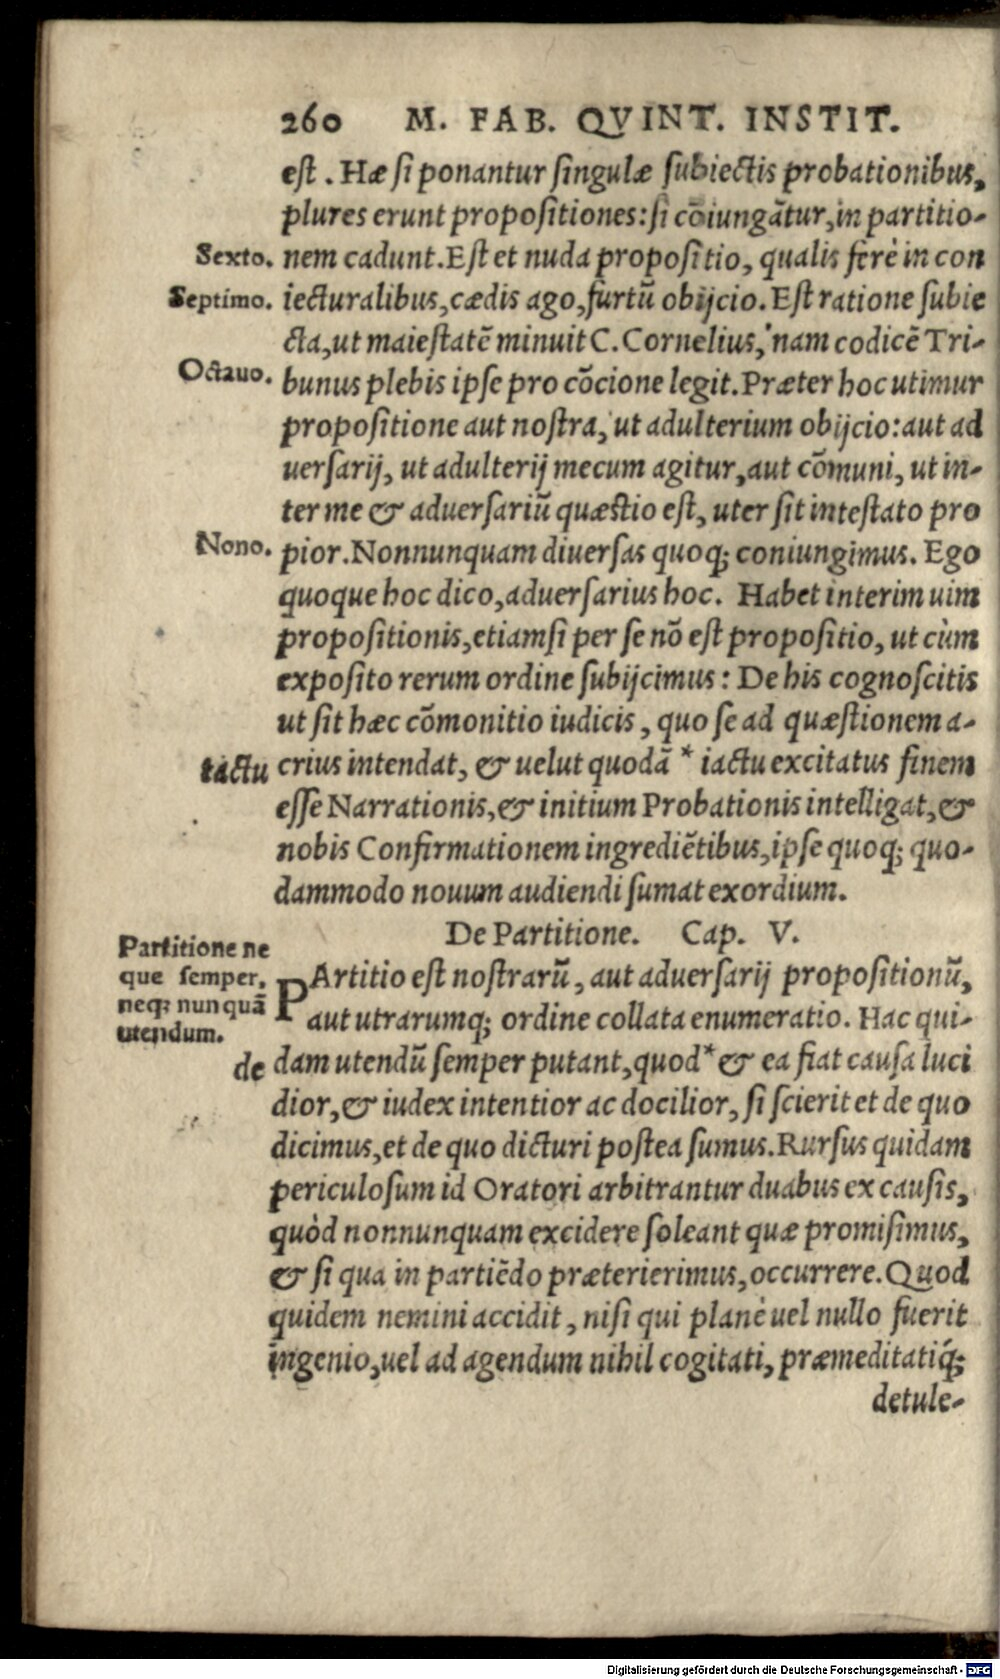 260 M. FAB. QVINT. INSTIT.
est. Hæ si ponantur singulæ subiectis probationibus,
plures erunt propositiones: si cōiungātur, in partitio-
Sexto. nem cadunt. Est et nuda propositio, qualis ferè in con
Septimo. iecturalibus, cædis ago, furtū obijcio. Est ratione subie
cta, ut maiestatē minuit C. Cornelius, nam codicē Tri-
Octauo. bunus plebis ipse pro cōcione legit. Præter hoc utimur
propositione aut nostra, ut adulterium obijcio: aut ad
uersarij, ut adulterij mecum agitur, aut cōmuni, ut in-
ter me & aduersariū quæstio est, uter sit intestato pro
Nono. pior. Nonnunquam diuersas quoq; coniungimus. Ego
quoque hoc dico, aduersarius hoc. Habet interim uim
propositionis, etiamsi per se nō est propositio, ut cùm
exposito rerum ordine subijcimus: De his cognoscitis
ut sit hæc cōmonitio iudicis, quo se ad quæstionem a-
tactu crius intendat, & uelut quodā * iactu excitatus finem
esse Narrationis, & initium Probationis intelligat, &
nobis Confirmationem ingrediētibus, ipse quoq; quo-
dammodo nouum audiendi sumat exordium.
De Partitione. Cap. V.
Partitione ne
que semper,
neq; nunquā
utendum.
PArtitio est nostrarū, aut aduersarij propositionū,
aut utrarumq; ordine collata enumeratio. Hac qui-
de dam utendū semper putant, quod * & ea fiat causa luci
dior, & iudex intentior ac docilior, si scierit et de quo
dicimus, et de quo dicturi postea sumus. Rursus quidam
periculosum id Oratori arbitrantur duabus ex causis,
quòd nonnunquam excidere soleant quæ promisimus,
& si qua in partiēdo præterierimus, occurrere. Quod
quidem nemini accidit, nisi qui planè uel nullo fuerit
ingenio, uel ad agendum nihil cogitati, præmeditatiq́;
detule-
Digitalisierung gefördert durch die Deutsche Forschungsgemeinschaft - DFG